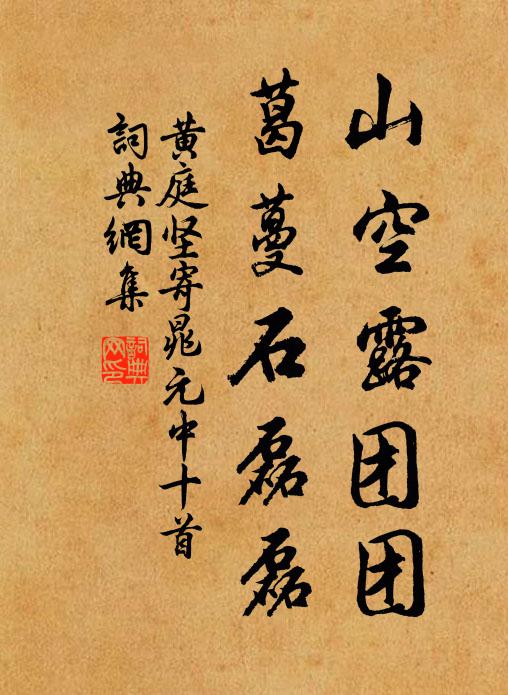 山空露团团
葛蔓石磊磊
黄庭坚寄晁元中十首
詞典網集
詞典
网印